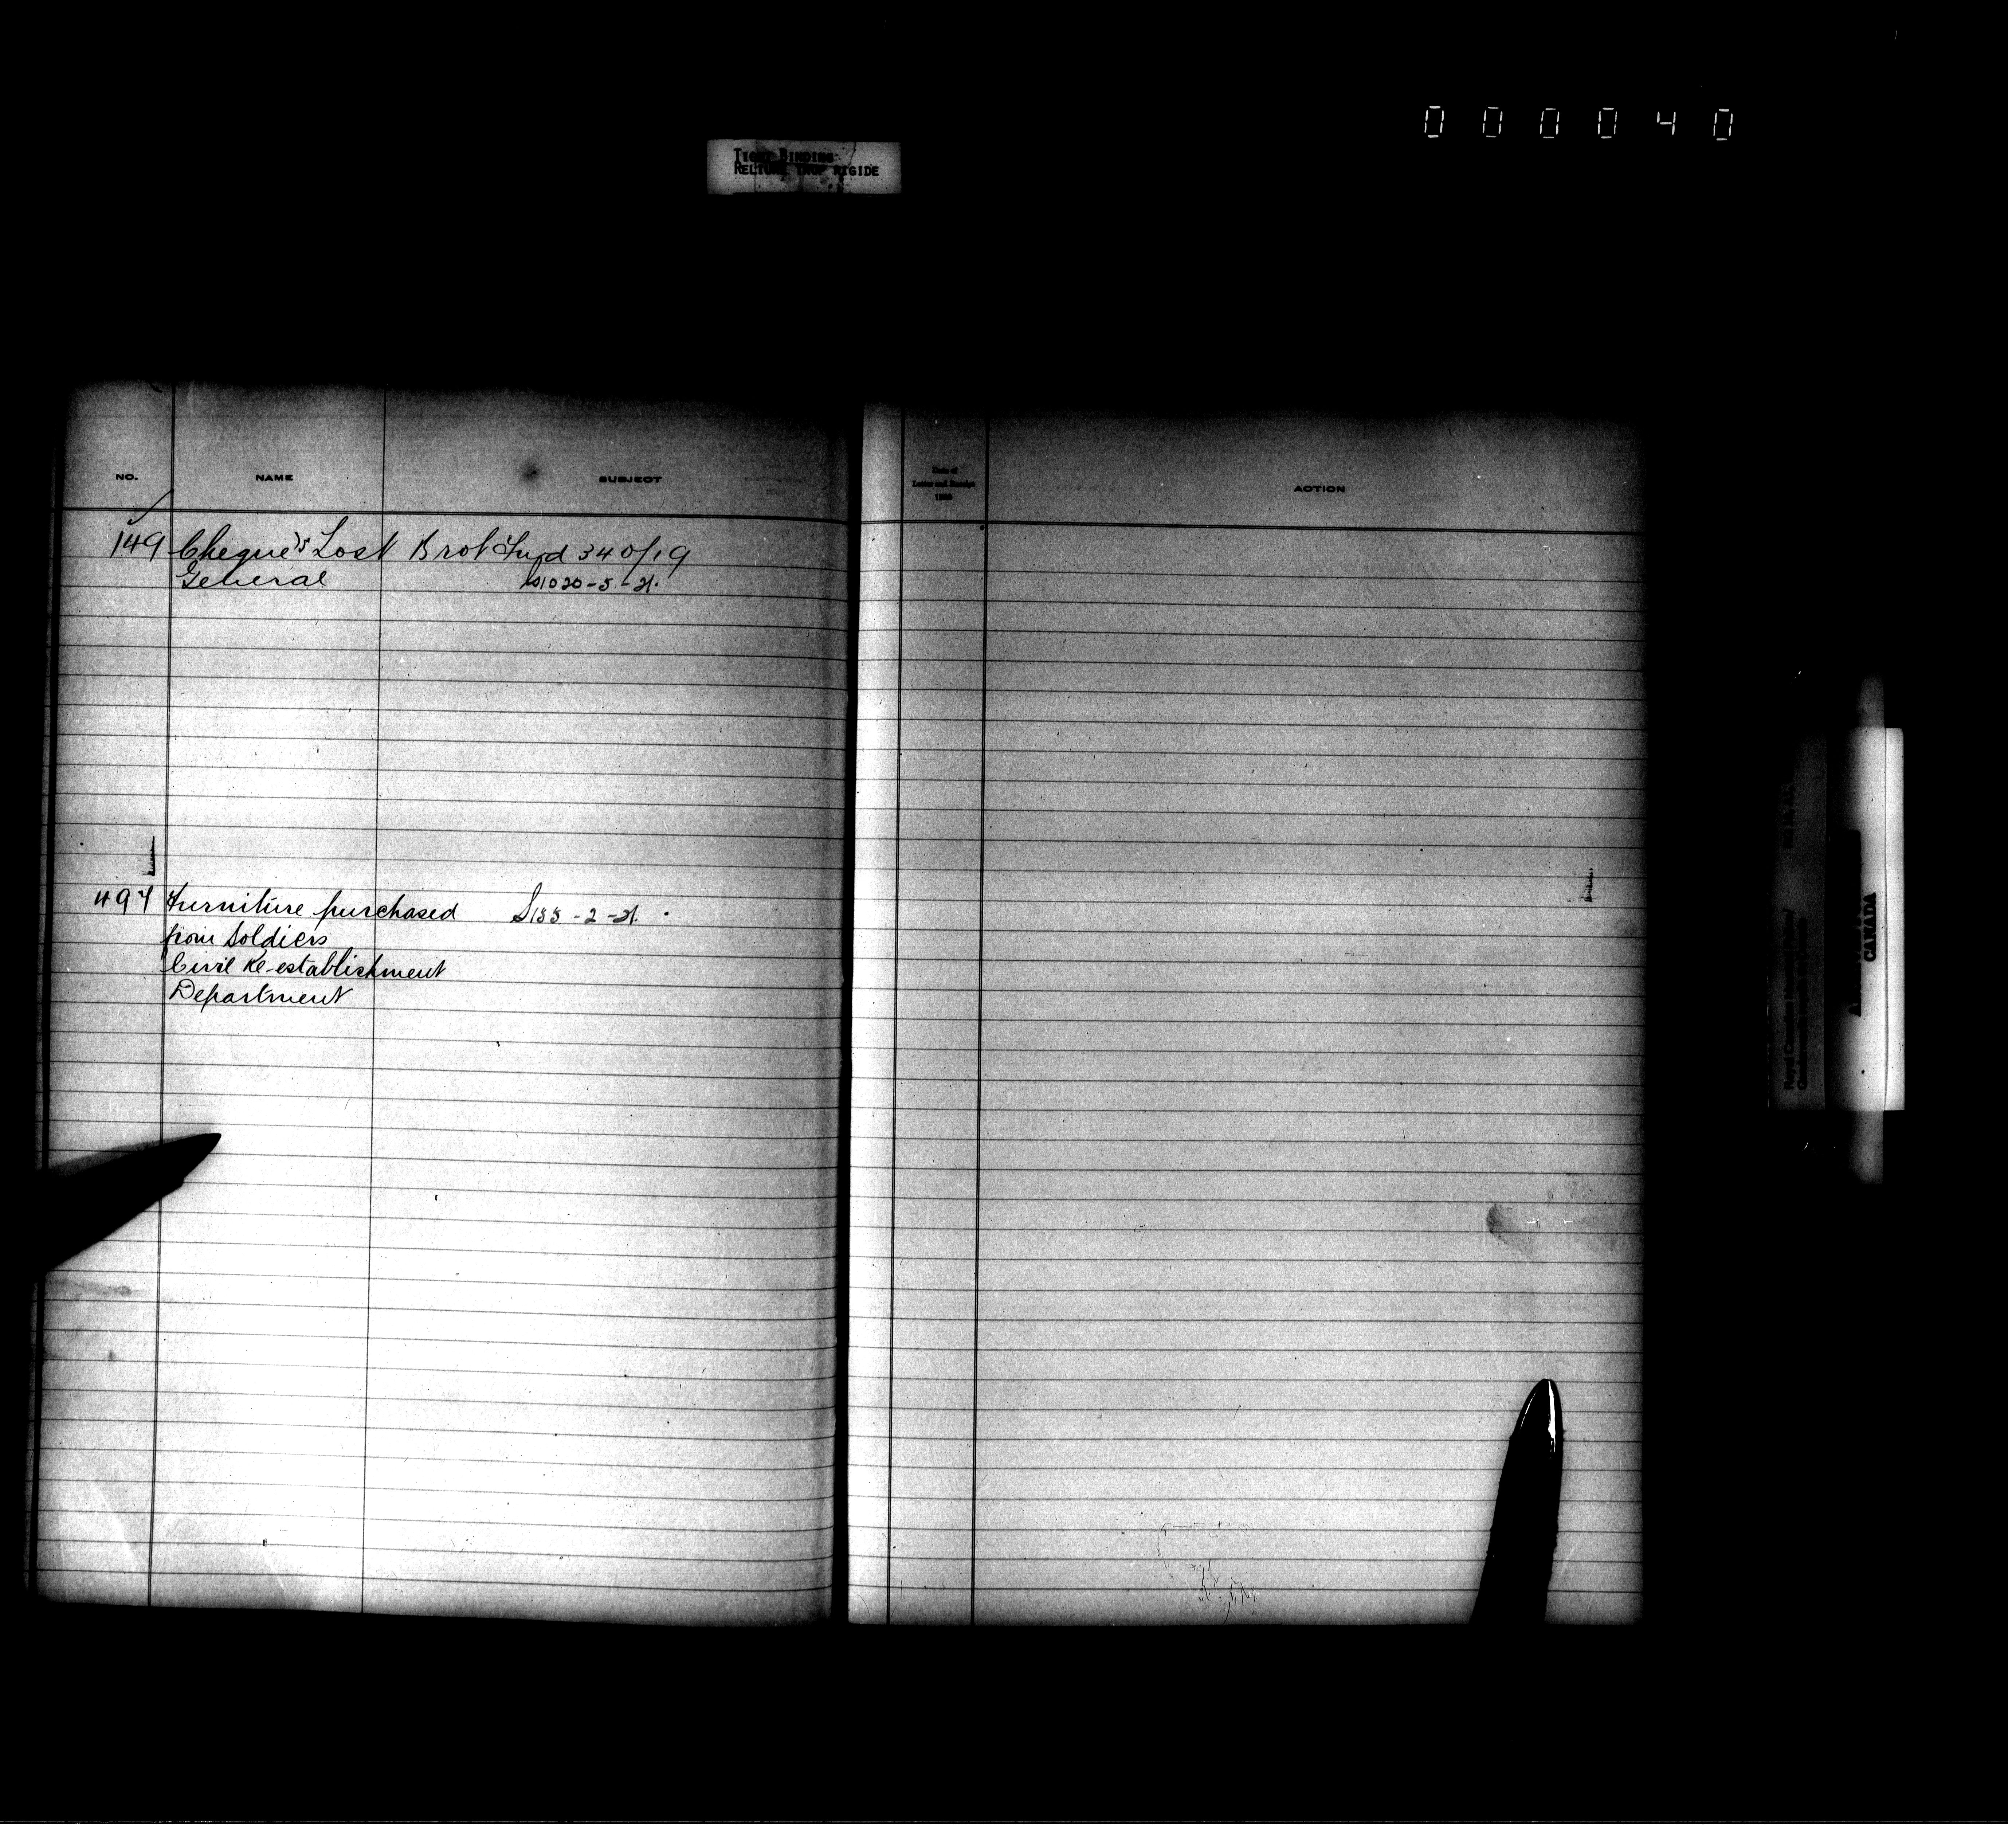 000040
TIGHT BINDING
RELIURE TROP RIGIDE
NO. NAME SUBJECT
Date of
Letter and Receipt
ACTION
149 Cheque's Lost Brot Fwd 340/19
General 1020-5-21.
497 Furniture purchased S155-2-21.
from Soldiers
Civil Re-establishment
Department
Royal Canadian Mounted Police/
CANADA